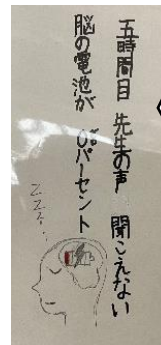 五時間目 先生の声 聞こえない
脳の電池が 0パーセント
zzz…